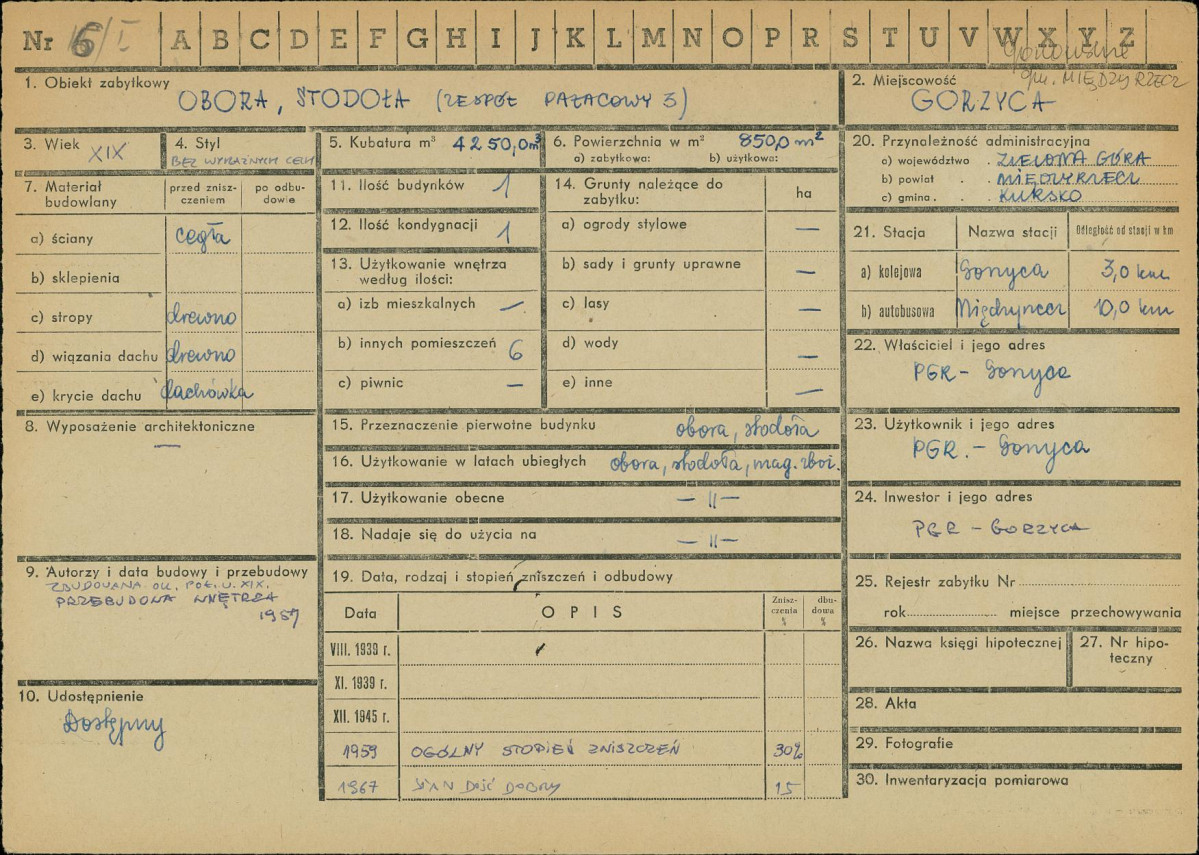 Nr 6/I A B C D E F G H I J K L M N O P R S T U V W X Y Z
gm. MIĘDZYRZECZ
1. Obiekt zabytkowy
OBORA, STODOŁA (ZESPÓŁ PAŁACOWY 3)
2. Miejscowość
GORZYCA
3. Wiek XIX
4. Styl
BEZ WYRAŹNYCH CECH
5. Kubatura m³ 4250,0m³
6. Powierzchnia w m² 850,0 m²
a) zabytkowa: b) użytkowa:
7. Materiał budowlany
przed znisz-
czeniem
po odbu-
dowie
a) ściany cegła
b) sklepienia
c) stropy drewno
d) wiązania dachu drewno
e) krycie dachu dachówka
8. Wyposażenie architektoniczne
—
9. Autorzy i data budowy i przebudowy
ZBUDOWANA OK. POŁ. W. XIX.
PRZEBUDOWA WNĘTRZA
1957
10. Udostępnienie
Dostępny
11. Ilość budynków 1
12. Ilość kondygnacji 1
13. Użytkowanie wnętrza
według ilości:
a) izb mieszkalnych —
b) innych pomieszczeń 6
c) piwnic —
14. Grunty należące do
zabytku:
ha
a) ogrody stylowe —
b) sady i grunty uprawne —
c) lasy —
d) wody —
e) inne —
15. Przeznaczenie pierwotne budynku obora, stodoła
16. Użytkowanie w latach ubiegłych obora, stodoła, mag. zboż.
17. Użytkowanie obecne — 11 —
18. Nadaje się do użycia na — 11 —
19. Data, rodzaj i stopień zniszczeń i odbudowy
Data OPIS
Znisz-
czenia
%
dbu-
dowa
%
VIII. 1939 r.
XI. 1939 r.
XII. 1945 r.
1959 OGÓLNY STOPIEŃ ZNISZCZEŃ 30%
1967 STAN DOŚĆ DOBRY 15
20. Przynależność administracyjna
a) województwo . ZIELONA GÓRA
b) powiat . . MIĘDZYRZECZ
c) gmina . . KURSKO
21. Stacja Nazwa stacji Odległość od stacji w km
a) kolejowa Gorzyca 3,0 km
b) autobusowa Międzyrzecz 10,0 km
22. Właściciel i jego adres
PGR - Gorzyca
23. Użytkownik i jego adres
PGR. - Gorzyca
24. Inwestor i jego adres
PGR - GORZYCA
25. Rejestr zabytku Nr
rok miejsce przechowywania
26. Nazwa księgi hipotecznej
27. Nr hipo-
teczny
28. Akta
29. Fotografie
30. Inwentaryzacja pomiarowa